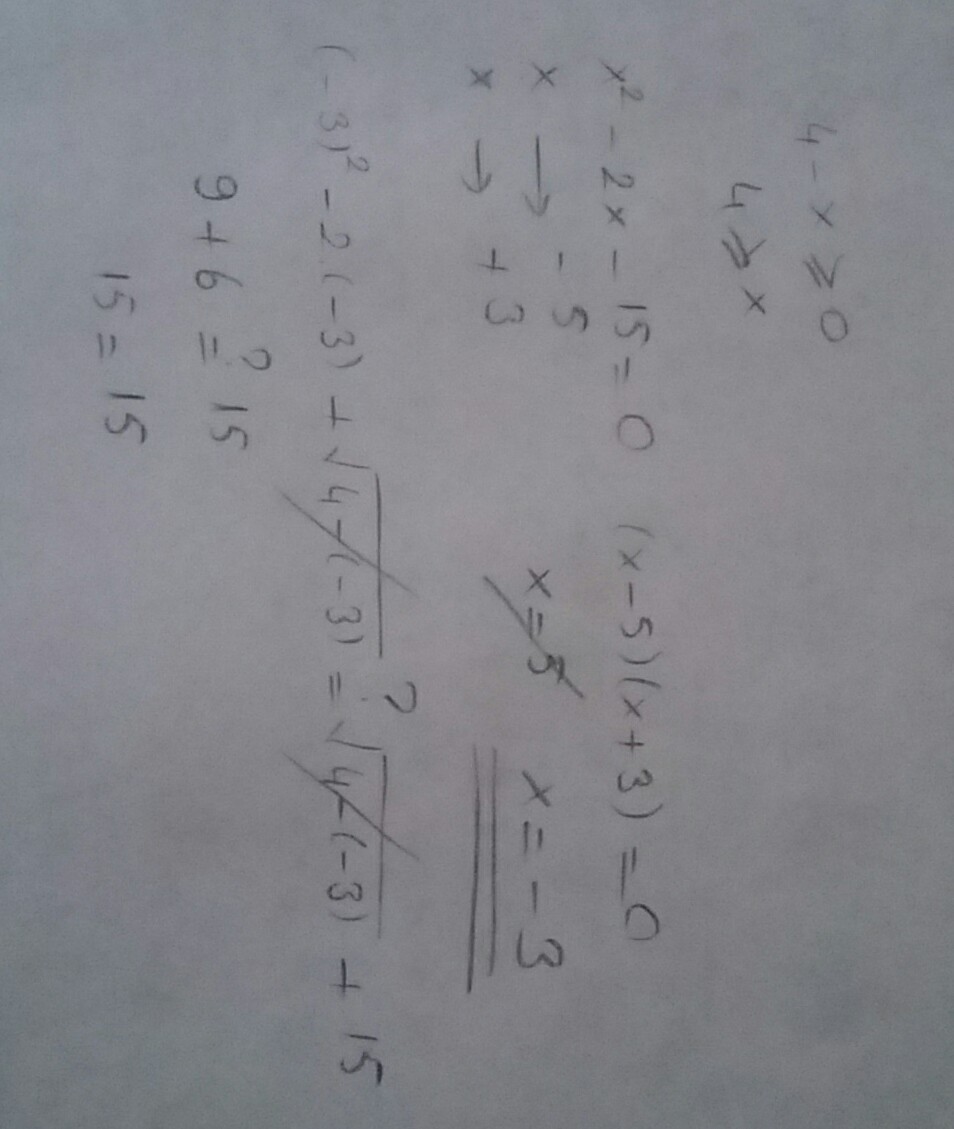 4 - x ⩾ 0
4 ⩾ x
x² - 2x - 15 = 0 (x - 5)(x + 3) = 0
x → - 5 x = 5 x = - 3
x → + 3
(-3)² - 2.(-3) + √4-(-3) ≟ √4-(-3) + 15
9 + 6 ≟ 15
15 = 15